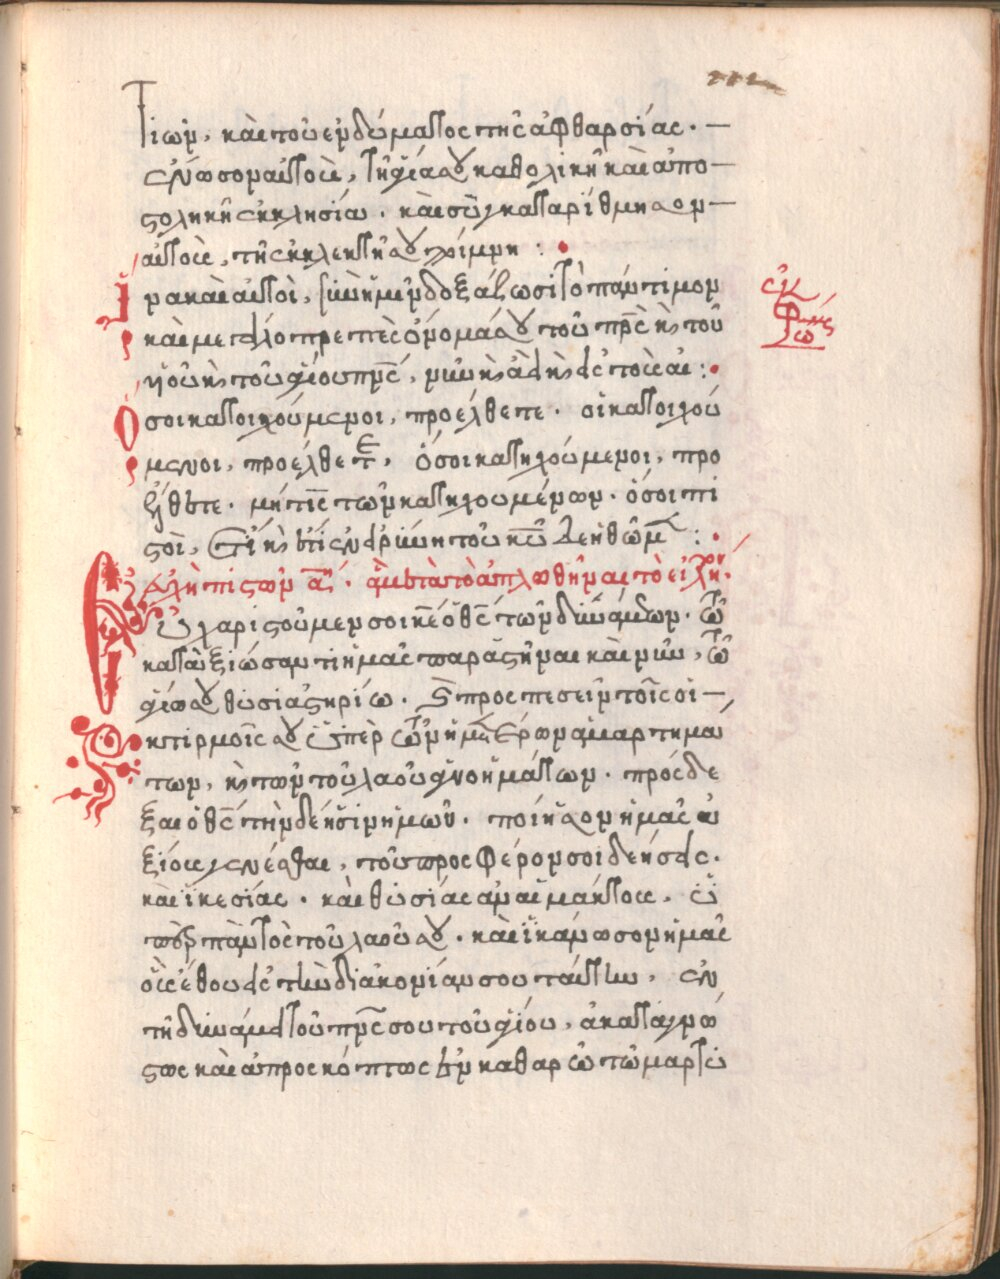 τιῶν, καὶ τοῦ ἐνδύματος τῆς ἀφθαρσίας. —
ἕνωσον αὐτοὺς, τῆ ἁγία σου καθολικῆ καὶ ἀπο—
στολικῆ ἐκκλησία. καὶ συγκαταρίθμησον—
αὐτοὺς, τῆ ἐκλεκτῆ σου ποίμνη :
Ἵνα καὶ αὐτοὶ, σὺν ἡμῖν δοξάζωσι τὸ πάντιμον
καὶ μεγαλοπρεπὲς ὄνομά σου τοῦ πρς κ τοῦ
υἱοῦ κ τοῦ ἁγίου πνς, νῦν κ ἀεὶ κ εἰς τοὺς αἰ :
Ὅσοι κατοιχούμενοι, προέλθετε. οἱ κατοιχού
μενοι, προέλθετ, ὅσοι κατηχούμενοι, προ
έλθετε. μήτις τῶν κατηχουμένων. ὅσοι πι
στοὶ, ἔτι κ ἔτι ἐν εἰρήνη τοῦ κυ δεηθῶμ :
Εὐχὴ πιστῶν α. μετὰ τὸ ἁπλωθῆναι τὸ εἰλη.
Εὐχαριστοῦμεν σοι κε ὁ θς τῶν δυνάμεων. τῶ
καταξιώσαντι ἡμᾶς παραστῆναι καὶ νῦν, τῶ
ἁγίω σου θυσιαστηρίω. κ προσπεσεῖν τοῖς οἰ—
κτιρμοῖς σου ὑπὲρ τῶν ἡμετέρων ἁμαρτημά
των, κ τῶν τοῦ λαοῦ ἀγνοημάτων. πρόσδε
ξαι ὁ θς τὴν δέησιν ἡμῶν. ποίησον ἡμᾶς ἀ
ξίους γενέσθαι, τοῦ προσφέρον σοι δεήσεις.
καὶ ἱκεσίας. καὶ θυσίας ἀναιμάκτους. ὑ
πὲρ παντὸς τοῦ λαοῦ σου. καὶ ἱκάνωσον ἡμᾶς
οὓς ἔθου εἰς τὴν διακονίαν σου ταύτην, ἐν
τῆ δυνάμει τοῦ πνς σου τοῦ ἁγίου, ἀκαταγνώ
στως καὶ ἀπροσκόπτως ἐν καθαρῶ τῶ μαρτυ
ἐκ
φώνως